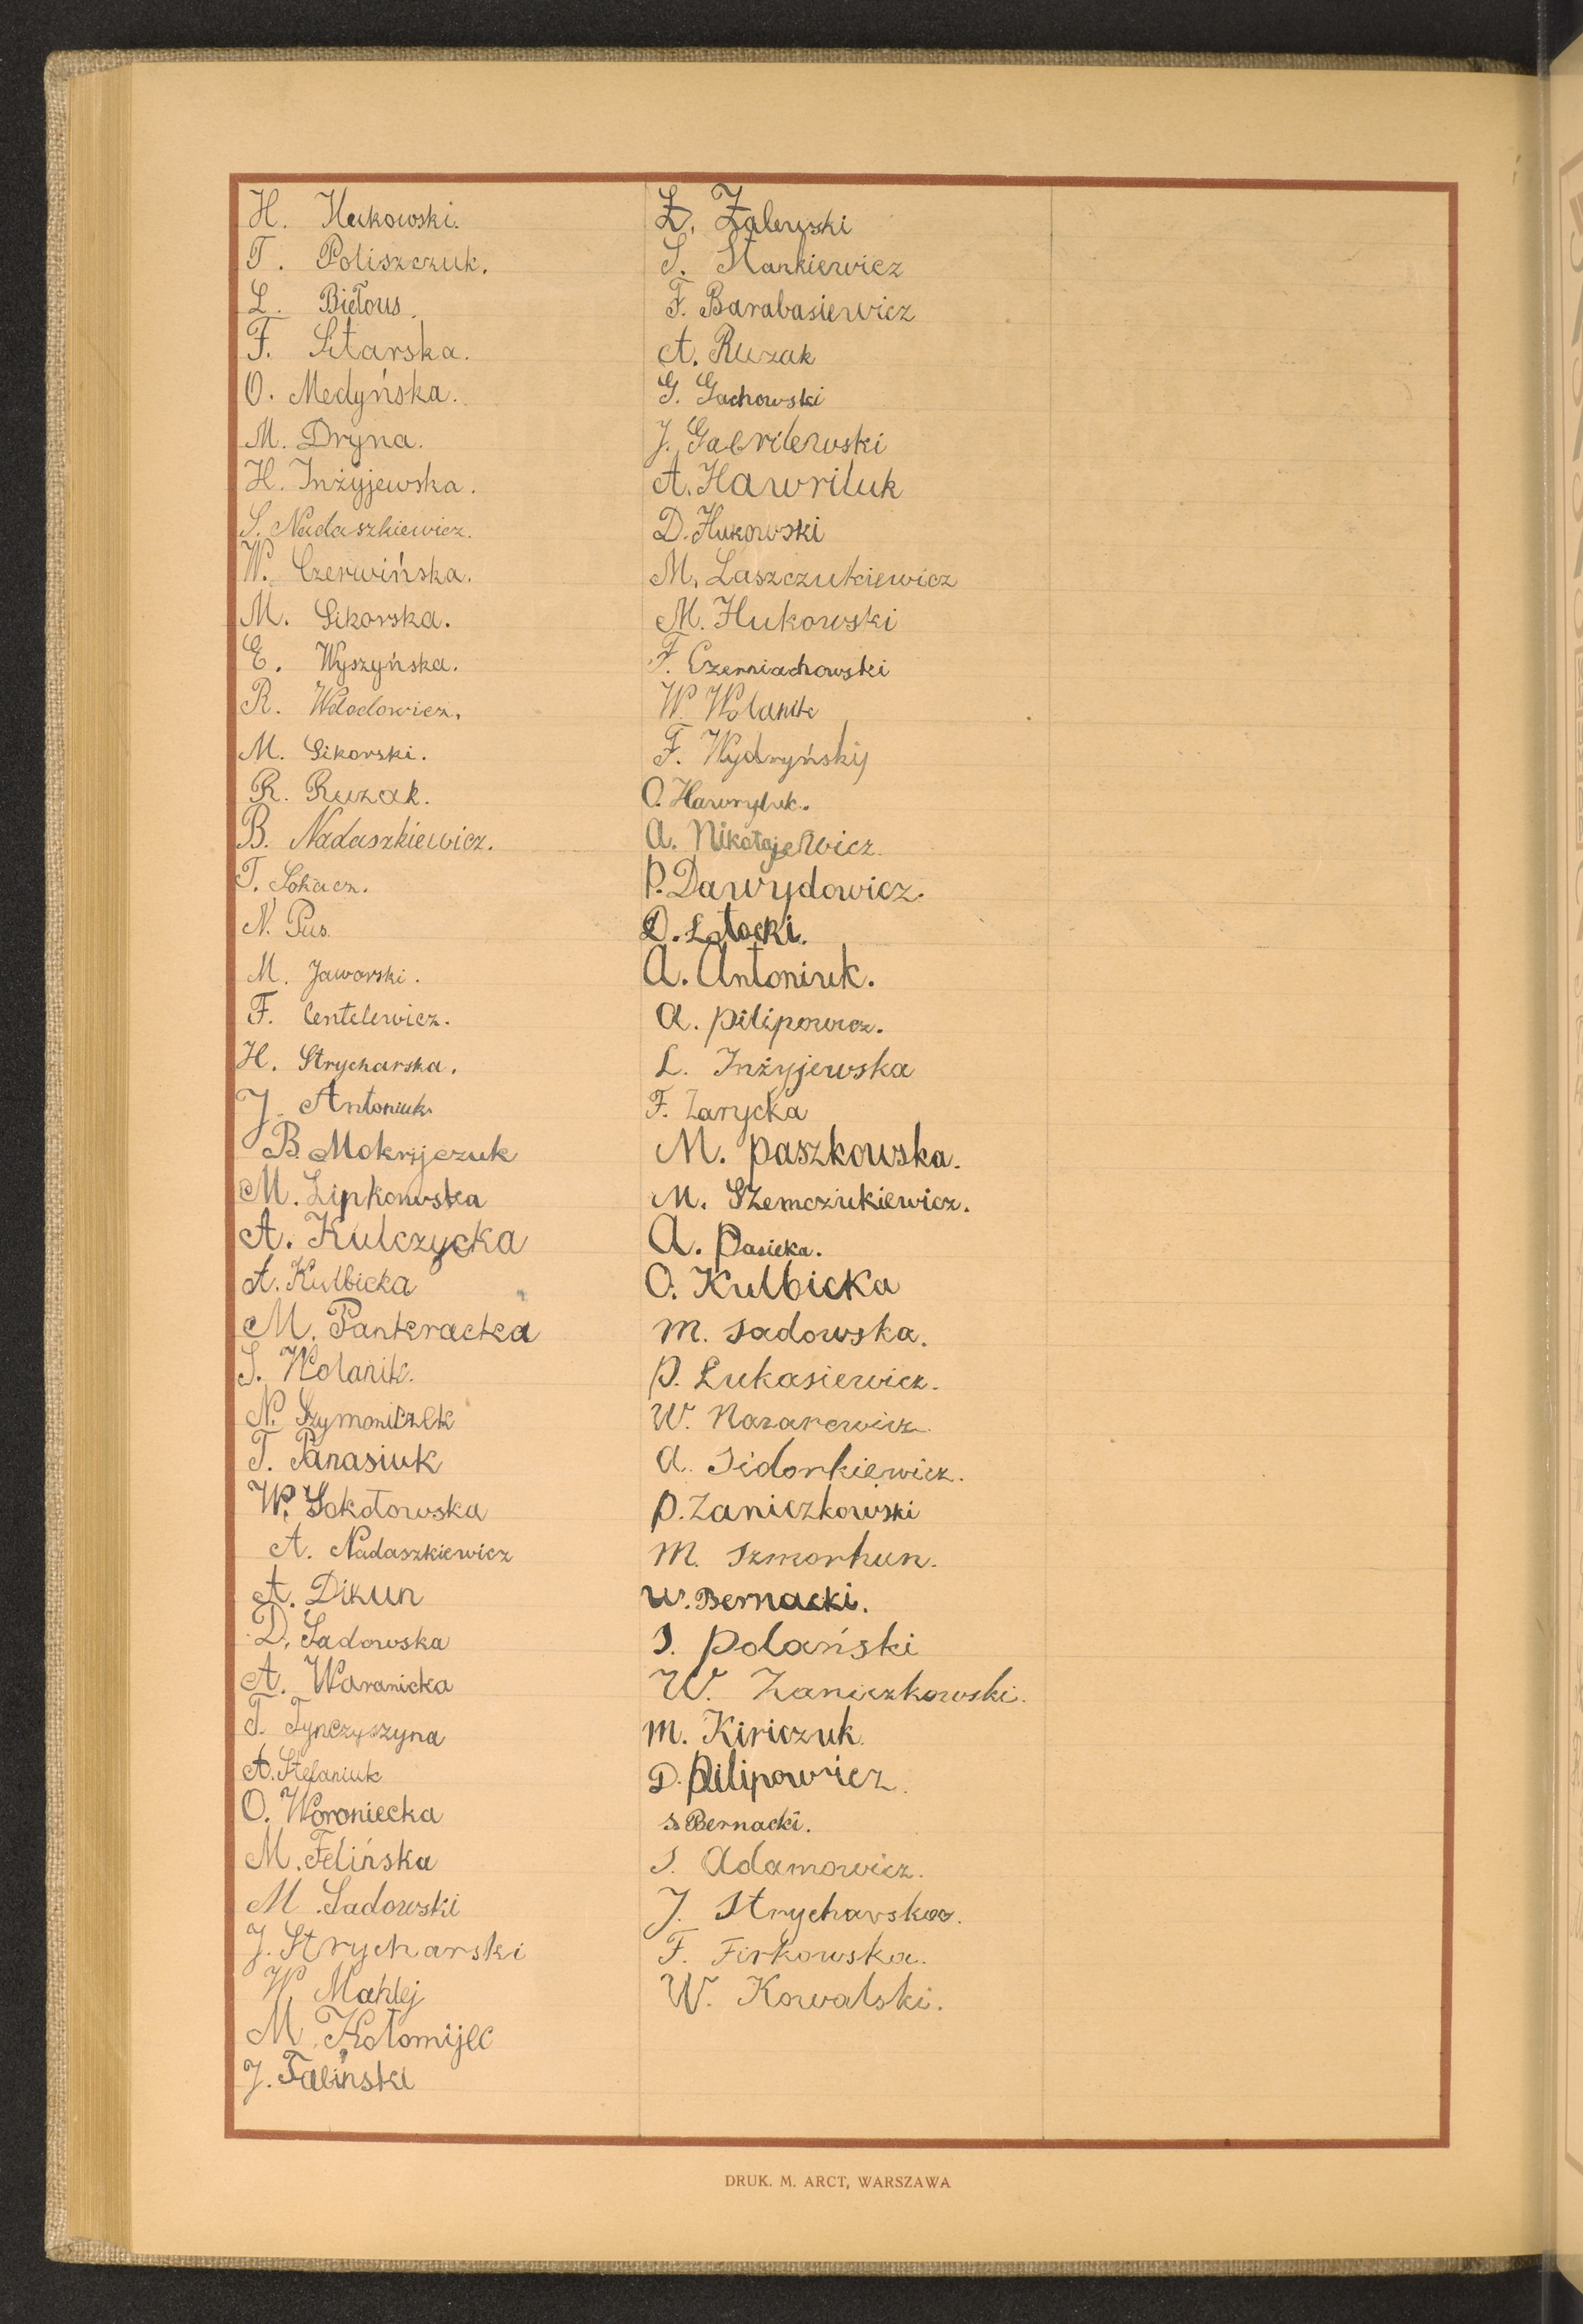 H. Hukowski.
T. Poliszczuk.
L. Biełous.
F. Sitarska.
O. Medyńska.
M. Dryna.
H. Inżyjewska.
S. Nadaszkiewicz.
W. Czerwińska.
M. Sikorska.
E. Wyszyńska.
R. Wołodowicz.
M. Sikorski.
R. Ruzak.
B. Nadaszkiewicz.
T. Sokacz.
N. Pus.
M. Jaworski.
F. Centelewicz.
H. Strycharska.
J. Antoniuk.
B. Mokryjczuk
M. Lipkowska
A. Kulczycka
A. Kulbicka
M. Pankracka
S. Wolanik.
N. Szymoniczek
T. Panasiuk
W. Sokołowska
A. Nadaszkiewicz
A. Dikun
D. Sadowska
A. Waranicka
T. Tynczyszyna
A. Stefaniuk
O. Woroniecka
M. Felińska
M. Sadowski
J. Strycharski
W. Mahlej
M. Kołomijec
J. Faliński
Z. Zalewski
S. Stankiewicz
F. Barabasiewicz
A. Ruzak
G. Gachowski
J. Gabrilewski
A. Hawriluk
D. Hukowski
M. Laszczukiewicz
M. Hukowski
F. Czerniachowski
W. Wolanik
F. Wydryńskij
O. Hawryluk.
A. Nikołajewicz.
P. Dawydowicz.
D. Łotocki.
A. Antoniuk.
A. Pilipowicz.
L. Inżyjewska
F. Zarycka
M. Paszkowska.
M. Szemczukiewicz.
A. Pasieka.
O. Kulbicka
M. Sadowska.
P. Łukasiewicz.
W. Nazarewicz.
A. Sidorkiewicz.
P. Zaniczkowski
M. Szmorhun.
W. Bernacki.
S. Polański
W. Zaniczkowski.
M. Kiriczuk.
D. Pilipowicz.
S. Bernacki.
S. Adamowicz.
J. Strycharska.
F. Firkowska.
W. Kowalski.
DRUK. M. ARCT, WARSZAWA